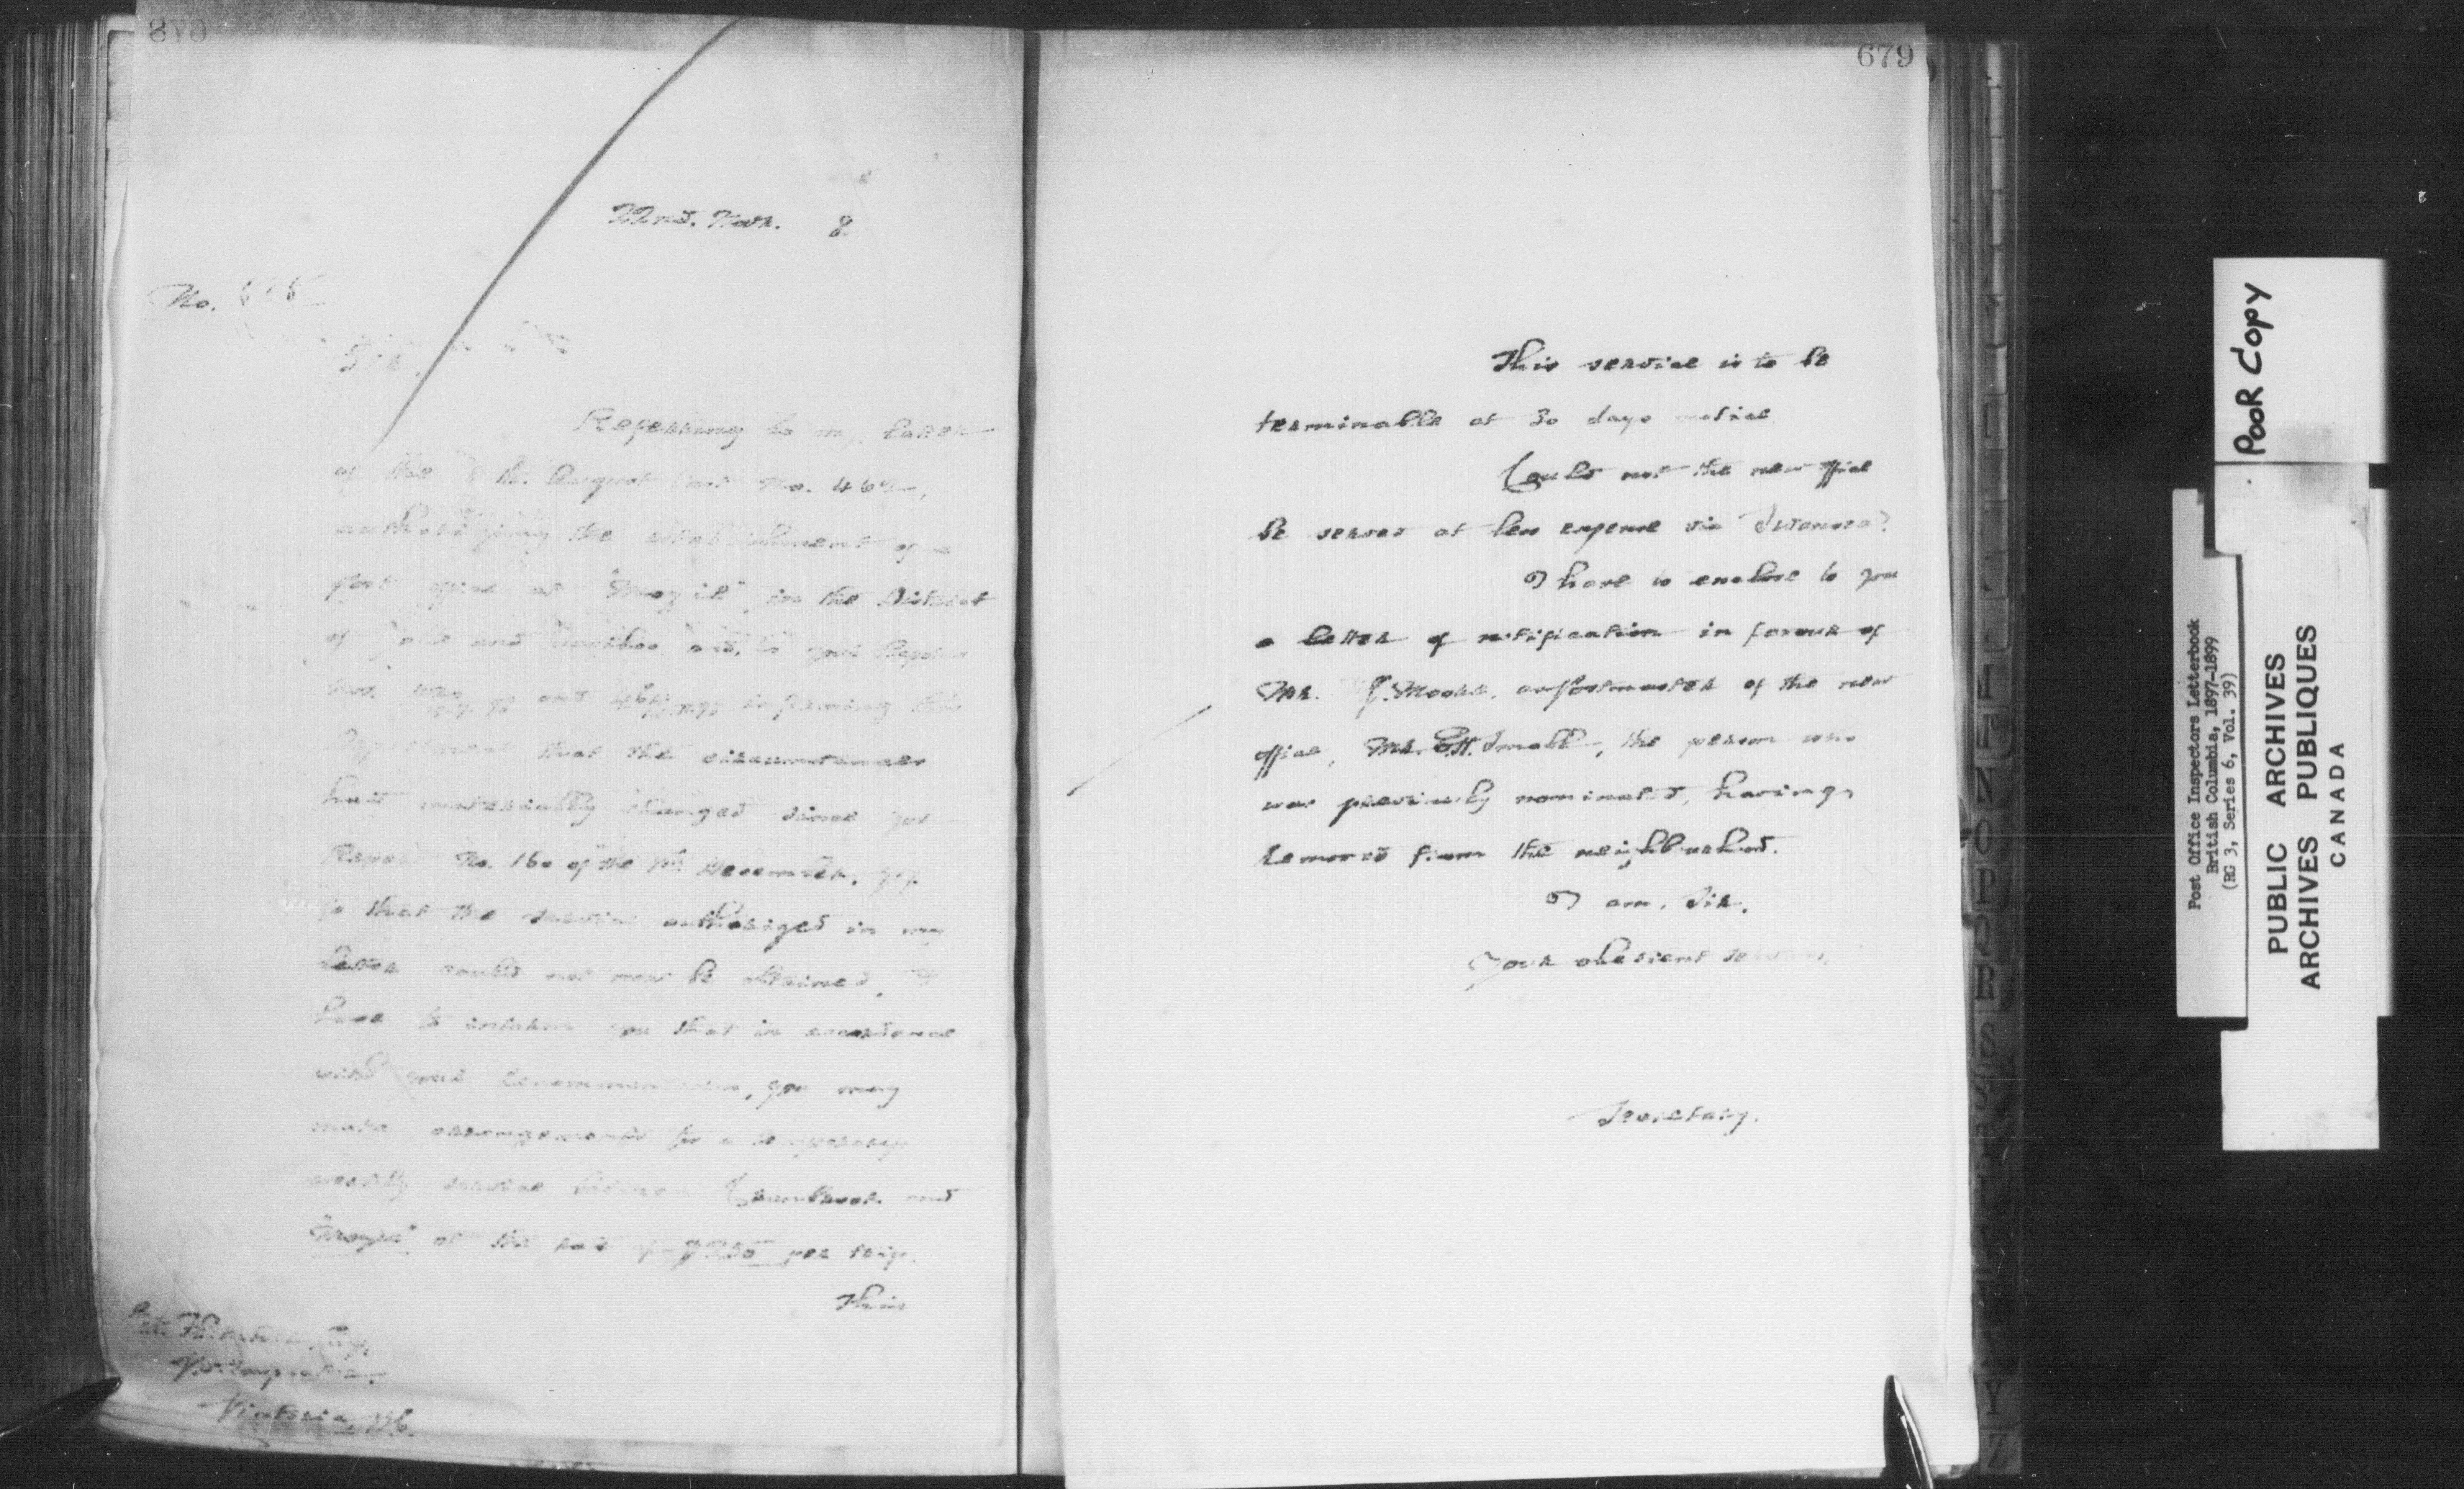 678
22nd. Novr. 8.
No.
Sir,
Referring to my letter
of the August last No. 462,
authorizing the establishment of a
post office at "Moyie", in the District
of Yale and Cariboo, and, to your Reports
Nos. and informing this
Department that the circumstances
have materially changed since your
Report No. 160 of the 7th. December, 97,
so that the service authorized in my
letter could not now be obtained, I
have to inform you that in accordance
with your recommendation, you may
make arrangements for a temporary
weekly service between Cranbrook and
"Moyie" at the rate of $2.50 per trip.
This
Victoria, B.C.
679
This service is to be
terminable at 30 days notice.
Could not the new office
be served at less expense via Swansea?
I have to enclose to you
a letter of notification in favour of
Mr. J. Moore, as postmaster of the new
office, Mr. E.H. Small, the person who
was previously nominated, having
removed from the neighbourhood.
I am, Sir,
Your obedient servant,
Secretary.
N
O
P
Q
R
S
Y
Z
POOR COPY
Post Office Inspectors Letterbook
British Columbia, 1897-1899
(RG 3, Series 6, Vol. 39)
PUBLIC ARCHIVES
ARCHIVES PUBLIQUES
CANADA